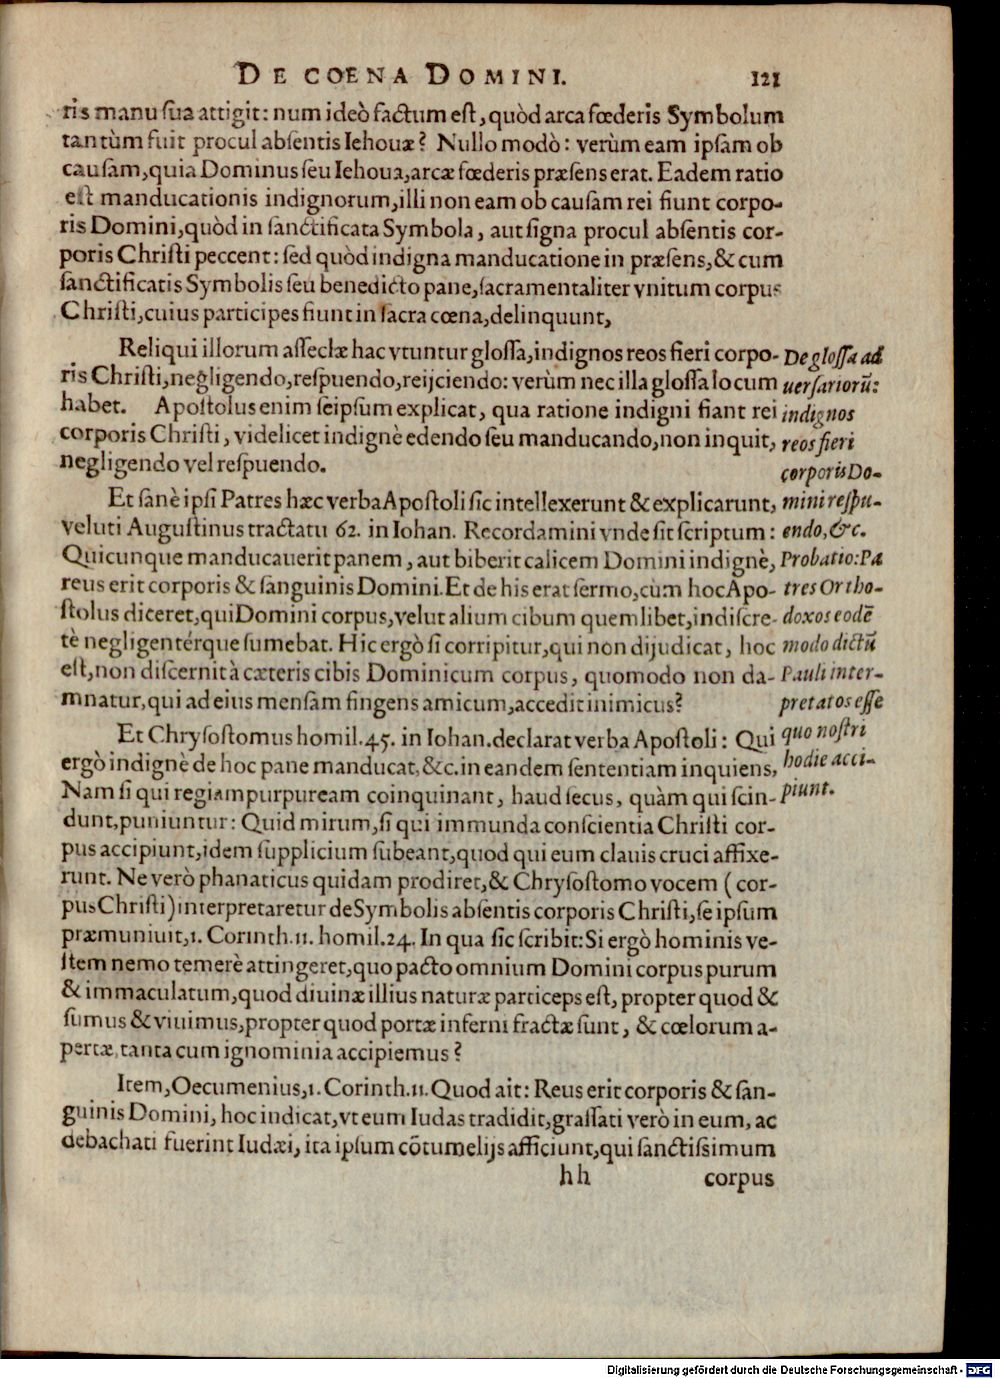 DE COENA DOMINI. 121
ris manu ſua attigit: num ideò factum eſt, quòd arca fœderis Symbolum
tantùm fuit procul abſentis Iehouæ? Nullo modò: verùm eam ipſam ob
cauſam, quia Dominus ſeu Iehoua, arcæ fœderis præſens erat. Eadem ratio
eſt manducationis indignorum, illi non eam ob cauſam rei fiunt corpo-
ris Domini, quòd in ſanctificata Symbola, aut ſigna procul abſentis cor-
poris Chriſti peccent: ſed quòd indigna manducatione in præſens, & cum
ſanctificatis Symbolis ſeu benedicto pane, ſacramentaliter vnitum corpus
Chriſti, cuius participes fiunt in ſacra cœna, delinquunt,
Reliqui illorum aſſeclæ hac vtuntur gloſſa, indignos reos fieri corpo-
ris Chriſti, negligendo, reſpuendo, reijciendo: verùm nec illa gloſſa locum
habet. Apoſtolus enim ſeipſum explicat, qua ratione indigni fiant rei
corporis Chriſti, videlicet indignè edendo ſeu manducando, non inquit,
negligendo vel reſpuendo.
De gloſſa ad
uerſariorũ:
indignos
reos fieri
corporis Do-
mini reſpu-
endo, &c.
Et ſanè ipſi Patres hæc verba Apoſtoli ſic intellexerunt & explicarunt,
veluti Auguſtinus tractatu 62. in Iohan. Recordamini vnde ſit ſcriptum:
Quicunque manducauerit panem, aut biberit calicem Domini indignè,
reus erit corporis & ſanguinis Domini. Et de his erat ſermo, cùm hoc Apo-
ſtolus diceret, qui Domini corpus, velut alium cibum quemlibet, indiſcre-
tè negligentérque ſumebat. Hic ergò ſi corripitur, qui non dijudicat, hoc
eſt, non diſcernit à cæteris cibis Dominicum corpus, quomodo non da-
mnatur, qui ad eius menſam fingens amicum, accedit inimicus?
Probatio: Pa
tres Ortho-
doxos eodẽ
modo dictũ
Pauli inter-
pretatos eſſe
quo noſtri
hodie acci-
piunt.
Et Chryſoſtomus homil. 45. in Iohan. declarat verba Apoſtoli: Qui
ergò indignè de hoc pane manducat, &c. in eandem ſententiam inquiens,
Nam ſi qui regiam purpuream coinquinant, haud ſecus, quàm qui ſcin-
dunt, puniuntur: Quid mirum, ſi qui immunda conſcientia Chriſti cor-
pus accipiunt, idem ſupplicium ſubeant, quod qui eum clauis cruci affixe-
runt. Ne verò phanaticus quidam prodiret, & Chryſoſtomo vocem (cor-
pus Chriſti) interpretaretur de Symbolis abſentis corporis Chriſti, ſe ipſum
præmuniuit, 1. Corinth. 11. homil. 24. In qua ſic ſcribit: Si ergò hominis ve-
ſtem nemo temerè attingeret, quo pacto omnium Domini corpus purum
& immaculatum, quod diuinæ illius naturæ particeps eſt, propter quod &
ſumus & viuimus, propter quod portæ inferni fractæ ſunt, & cœlorum a-
pertæ, tanta cum ignominia accipiemus?
Item, Oecumenius, 1. Corinth. 11. Quod ait: Reus erit corporis & ſan-
guinis Domini, hoc indicat, vt eum Iudas tradidit, graſſati verò in eum, ac
debachati fuerint Iudæi, ita ipſum cõtumelijs afficiunt, qui ſanctiſsimum
hh corpus
Digitalisierung gefördert durch die Deutsche Forschungsgemeinschaft - DFG